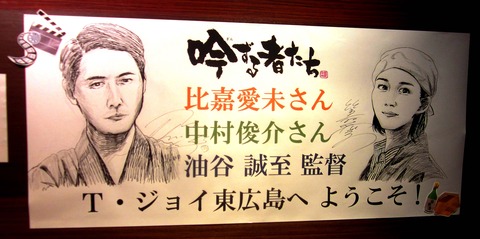 吟ずる者たち
比嘉愛未さん
中村俊介さん
油谷 誠至 監督
T・ジョイ東広島へ ようこそ!